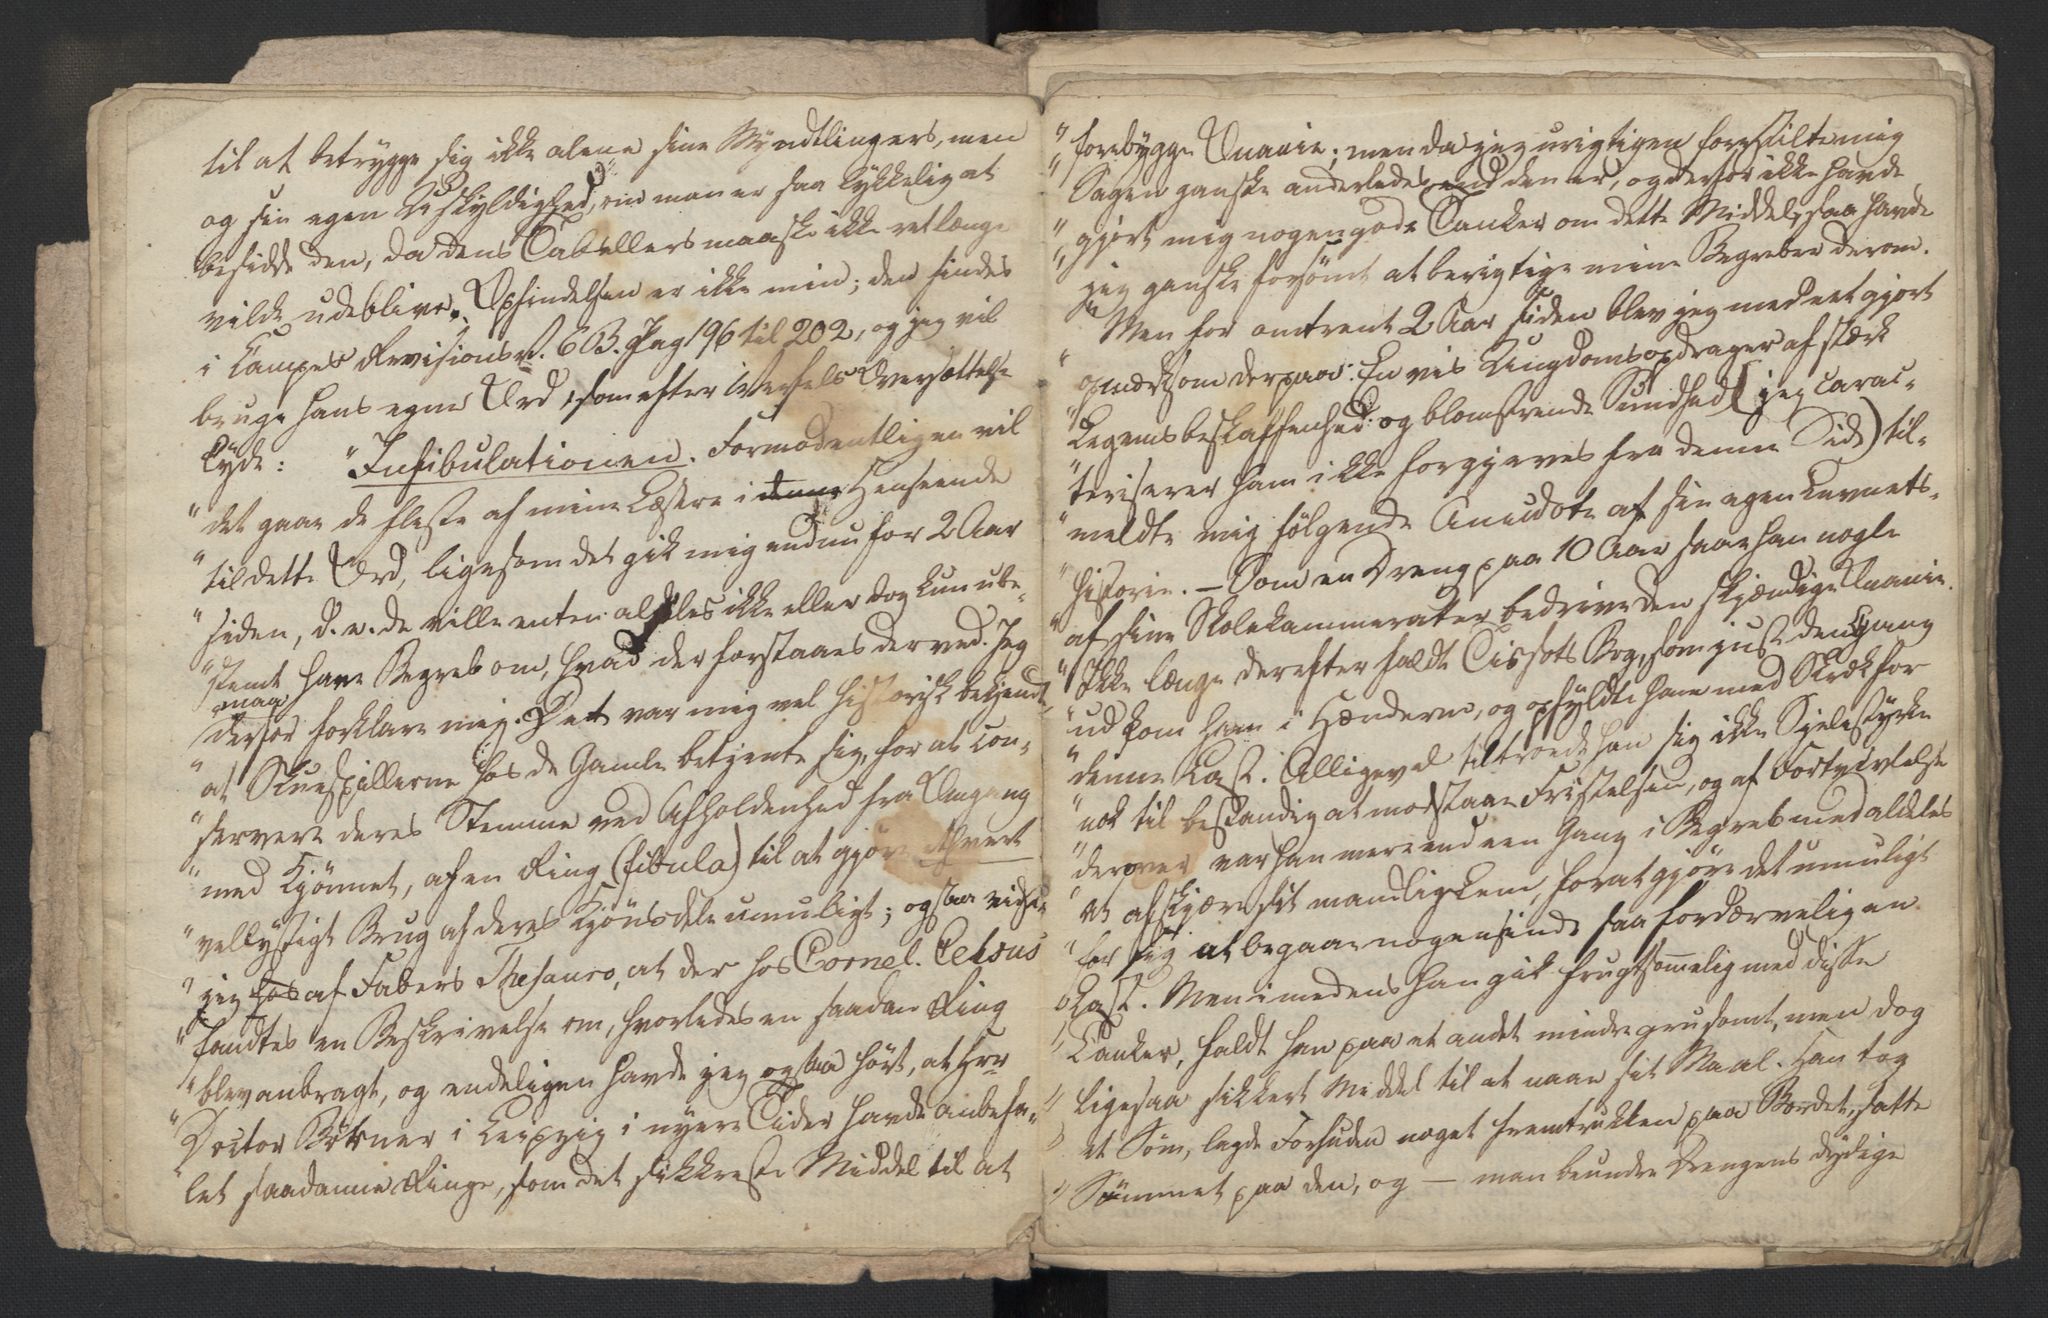 til at betrygge sig ikke alene sine Myndtlingers, men
og sin egen Uskyldighed, om man er saa lykkelig at
besidde den, da dens Tabellers maaske ikke ret længe
vilde udeblive. Opfindelsen er ikke min; den findes
i Campes Revisions v. 6 B. Pag 196 til 202, og jeg vil
bruge hans egne Ord, som efter Oversættelse
lyde: "Infibulationen. Formodentligen vil
"det gaae de fleste af mine Læsere i denne Henseende
"til dette Ord, ligesom det gik mig endnu for 2 Aar
"siden, d. e. de ville enten aldeles ikke eller dog kun ube-
"stemt have Begreb om, hvad der forstaaes derved. Jeg
maa
"derfor forklare mig. Det var mig vel historisk bekjendt,
"at Skuespillerne hos de Gamle betjente sig, for at con-
"servere deres Stemme ved Afholdenhed fra Omgang
"med Kjönnet, af en Ring (fibula) til at gjöre ethvert
"vellystigt Brug af deres Kjönsdele umuligt; ogsaa vidste
"jeg hos af Fabers Thesauro, at der hos Cornel. Celsus
"fandtes en Beskrivelse om, hvorledes en saadan Ring
"blev anbragt, og endeligen havde jeg ogsaa hört, at Hrr
"Doctor Börner i Leipzig i nyere Tider havde anbefa-
let saadanne Ringe, som det sikkreste Middel til at
"forebygge Onanie; men da jeg urigtigen forestilte mig
"Sagen ganske anderledes end den er, og derfor ikke havde
"gjort mig nogen gode Tanker om dette Middel, saa havde
"jeg ganske forsömt at berigtige mine Begreber derom.
"Men for omtrent 2 Aar siden blev jeg med eet gjort
"opmærksom derpaa: En vis Ungdomsopdrager af stærk
"Legemsbeskaffenhed og blomstrende Sundhed (jeg carac-
"teriserer ham ikke forgjeves fra denne Side) til-
"meldte mig følgende Anecdote af sin egen Levnets-
"historie. – Som en Dreng paa 10 Aar saae han nogle
"af sine Skolekammerater bedrive den skjændige Onanie.
"Ikke længe derefter faldt Tissots Bog, som just den Gang
"udkom ham i Hænderne, og opfyldte ham med Skræk for
"denne Last. Alligevel tiltroede han sig ikke Sjelestyrke
"nok til bestandig at modstaae Fristelsen, og af Fortvivlelse
"derover var han mere end een Gang i Begreb med aldeles
"at afskjære sit mandlig Lem, for at gjöre det umuligt
"for sig at begaae nogensinde saa fordærvelig en
"Last. Men imedens han gik frugtsommelig med disse
"Tanker, faldt han paa et andet mindre grusomt, men dog
"ligesaa sikkert Middel til at naae sit Maal. Han tog
"et Söm, lagde Forhuden noget fremtrukken paa Bordet, satte
"Sömmet paa den, og — man beundre Drengens dydige